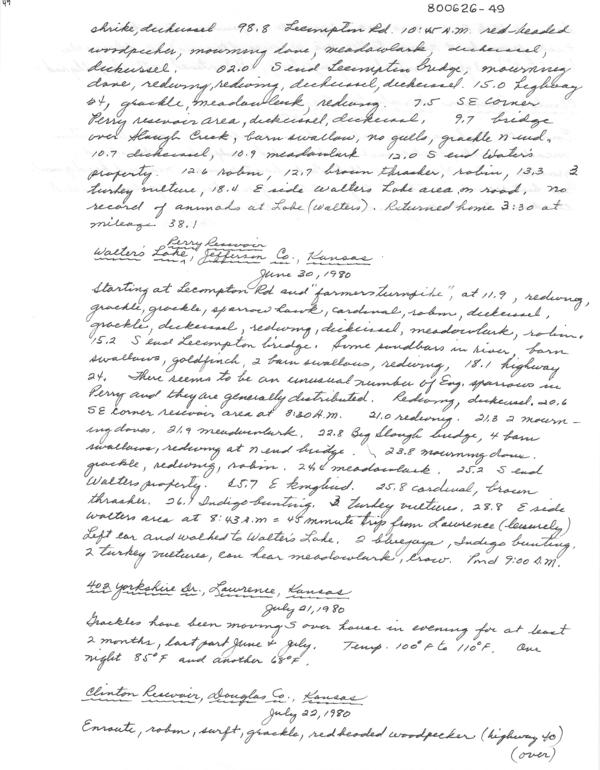 49
800626-49
shrike, dickcissel 98.8 Lecompton Rd. 10:45 A.M. red-headed
woodpecker, mourning dove, meadowlark, dickcissel,
dickcissel. 02.0 S end Lecompton bridge, mourning
dove, redwing, redwing, dickcissel, dickcissel. 15.0 highway
24, grackle, meadowlark, redwing. 7.5 SE corner
Perry resevoir area, dickcissel, dickcissel, 9.7 bridge
over Slough Creek, barn swallow, no gulls, grackle N end.
10.7 dickcissel, 10.9 meadowlark 12.0 S end Walters
property. 12.6 robin, 12.7 brown thrasher, robin, 13.3 3
turkey vulture, 18.4 E side Walters Lake area, on road, no
record of animals at Lake (Walters). Returned home 3:30 at
mileage 38.1
Perry Resevoir
Walter's Lake, Jefferson Co., Kansas
June 30, 1980
Starting at Lecompton Rd and "farmers turnpike", at 11.9, redwing,
grackle, grackle, sparrow hawk, cardinal, robin, dickcissel,
grackle, dickcissel, redwing, dickcissel, meadowlark, robin.
15.2 S end Lecompton bridge. Some sandbars in river, barn
swallows, goldfinch, 2 barn swallows, redwing, 18.1 highway
24. There seems to be an unusual number of Eng. sparrows in
Perry and they are generally distributed. Redwing, dickcissel. 20.6
SE corner resevoir area at 8:30 A.M. 21.0 redwing. 21.3 2 mourn-
ing doves. 21.9 meadowlark. 22.8 Big Slough bridge, 4 barn
swallows, redwing at N end bridge. 23.8 mourning dove.
grackle, redwing, robin. 24.6 meadowlark. 25.2 S end
Walters property. 25.7 E kingbird. 25.8 cardinal, brown
thrasher. 26.9 Indigo bunting. 3 turkey vultures. 28.8 E side
Walters area at 8:43 A.M = 45 minute trip from Lawrence (leisurely)
Left car and walked to Walter's Lake. 2 bluejays, Indigo bunting,
2 turkey vultures, can hear meadowlark, crow. End 9:00 A.M.
402 Yorkshire Dr., Lawrence, Kansas
July 21, 1980
Grackles have been moving S over house in evening for at least
2 months, last part June & July. Temp. 100°F to 110°F. One
night 85°F and another 68°F.
Clinton Resevoir, Douglas Co., Kansas
July 22, 1980
Enroute, robin, swift, grackle, redheaded woodpecker (highway 40)
(over)